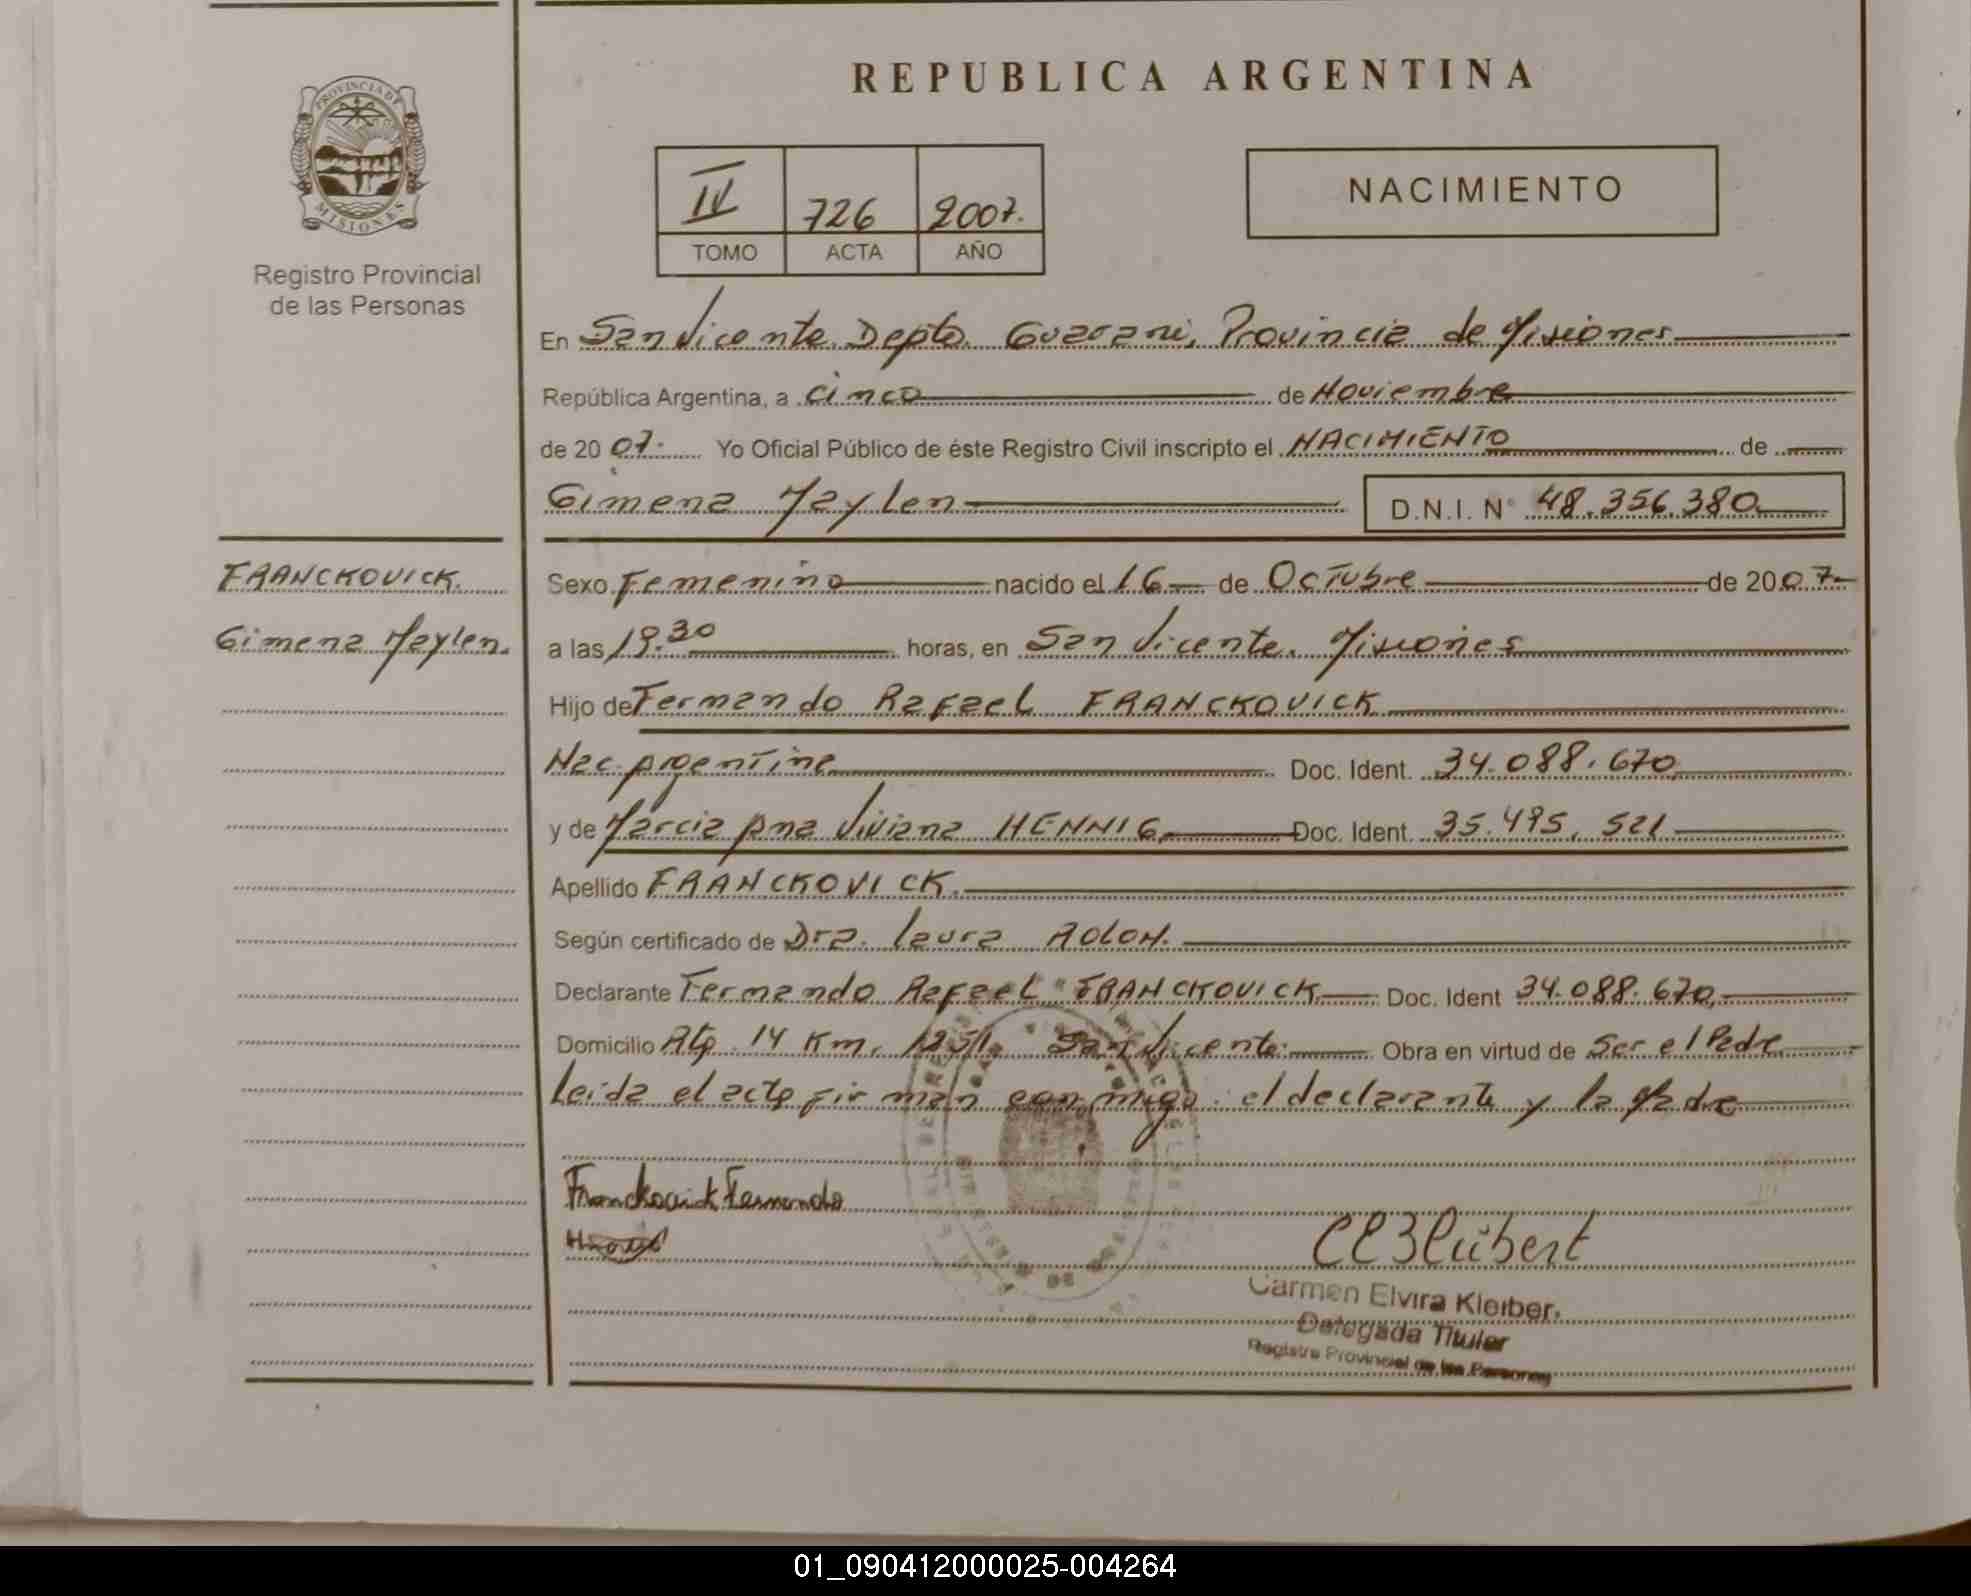 REPUBLICA ARGENTINA
PROVINCIA DE
MISIONES
Registro Provincial
de las Personas
IV 726 2007.
TOMO ACTA AÑO
NACIMIENTO
En San Vicente Depto. Guarani, Provincia de Misiones
República Argentina, a cinco de Noviembre
de 20 07. Yo Oficial Público de éste Registro Civil inscripto el NACIMIENTO de
Gimena Maylen D.N.I. N° 48.356.380
FRANCKOVICK.
Gimena Maylen.
Sexo Femenino nacido el 16 de Octubre de 2007
a las 19.30 horas, en San Vicente. Misiones
Hijo de Fernando Rafael FRANCKOVICK
Nac. Argentina Doc. Ident. 34.088.670
y de Marcia Ana Viviana HENNIG Doc. Ident. 35.495.521
Apellido FRANCKOVICK.
Según certificado de Dra. Laura ROLON.
Declarante Fernando Rafael FRANCKOVICK Doc. Ident 34.088.670
Domicilio Rta 14 Km. 1251. San Vicente Obra en virtud de Ser el Padre
Leida el acta firman conmigo: el declarante y la Madre
Franckovick Fernando
CEKleibert
Carmen Elvira Kleiber.
Delegada Titular
Registro Provincial de las Personas
01_090412000025-004264